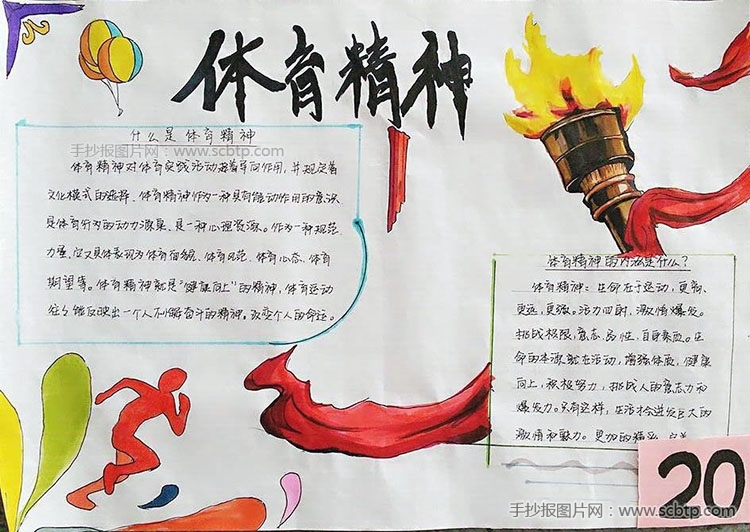 体育精神
什么是体育精神
手抄报图片网:www.scbtp.com
体育精神对体育实践活动起着导向作用，并规定着
文化模式的选择、体育精神作为一种具有能动作用的意识
是体育行为的动力源泉、是一种心理资源。作为一种规范
力量，它又具体表现为体育面貌、体育风范、体育心态、体育
期望等。体育精神就是“健康向上”的精神，体育运动
往往能反映出一个人不懈奋斗的精神。改变个人的命运。
体育精神的内涵是什么？
体育精神：生命在于运动，更高、
更远，更强。活力四射，激情爆发。
挑战极限，意志品性，自身素质。生
命的本源就在活动，增强体质，健康
向上，积极努力，挑战人的意志力和
爆发力。只有这样，生活才会迸发巨大的
激情和魅力。更加的精彩
20
手抄报图片网：www.scbtp.com